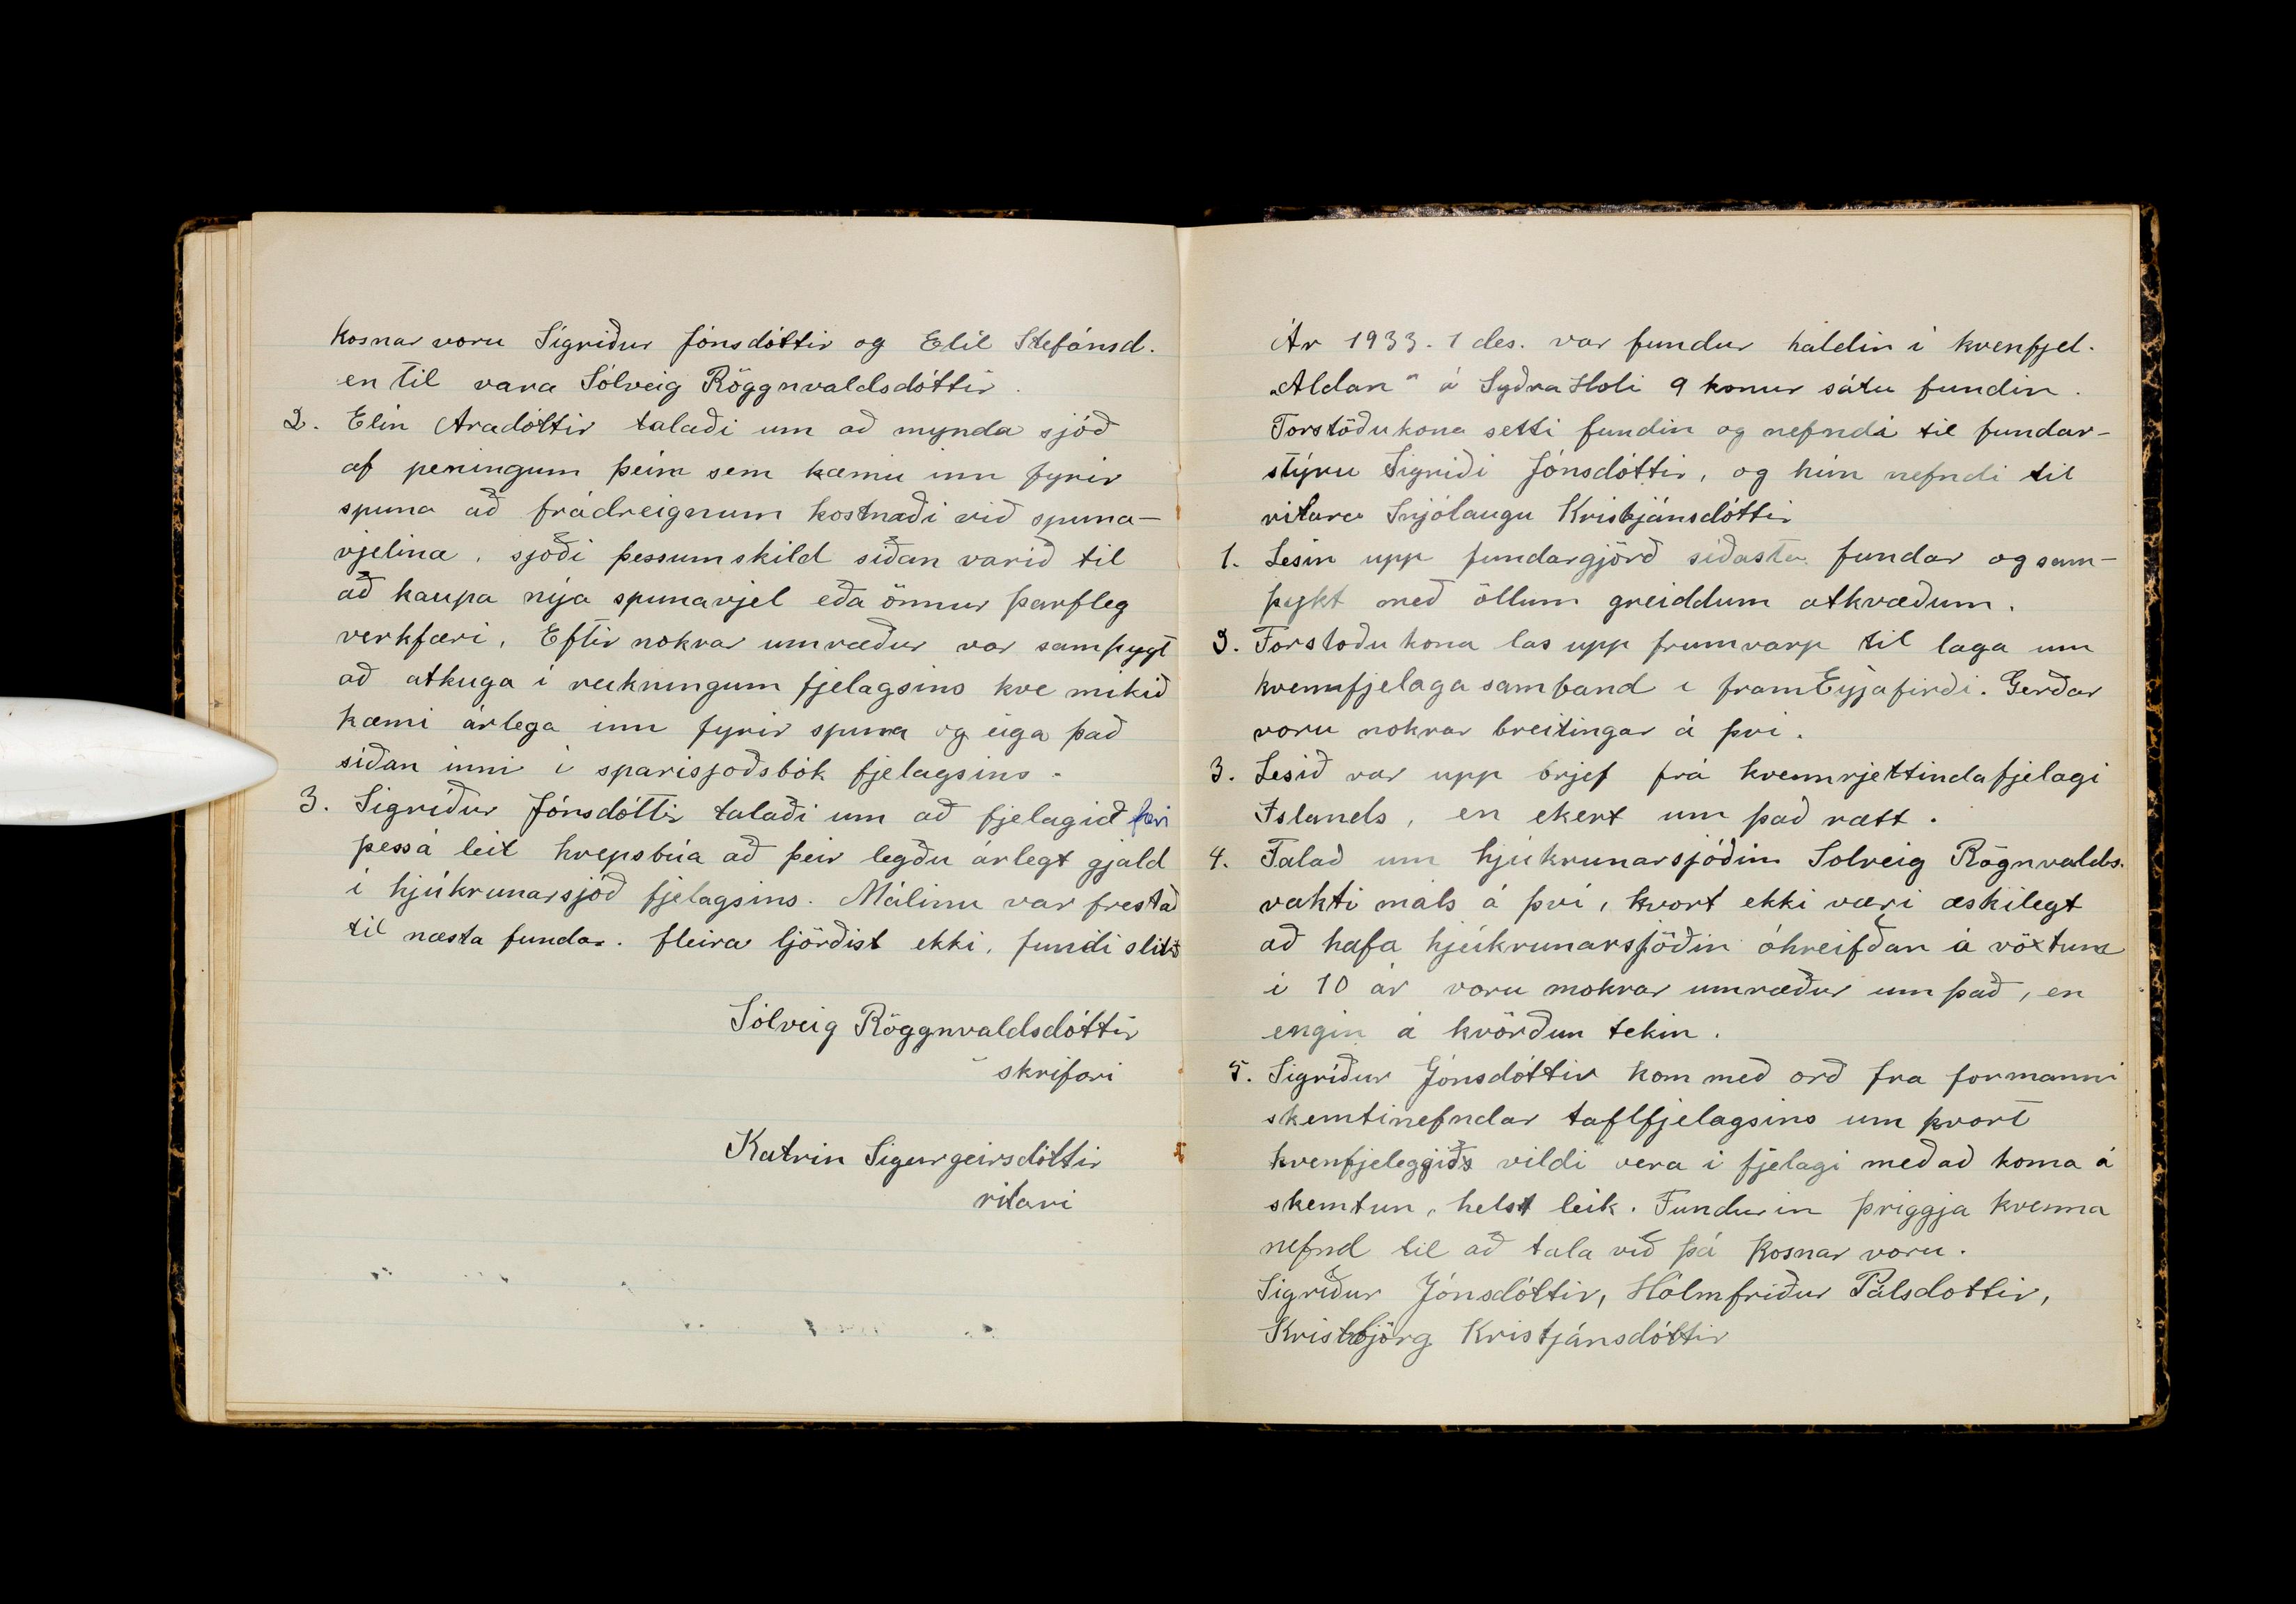 kosnar voru Sigriður Jónsdóttir og Elil Stefánsd.
en til vara Sólveig Röggnvaldsdóttir.
2. Elín Aradóttir talaði um að mynda sjóð
af peningum þeim sem kæmu inn fyrir
spuna að frádreignum kostnaði við spuna-
vjelina. sjóði þessum skild síðan varið til
að kaupa nýja spunavjel eða önnur þarfleg
verkfæri. Eftir nokrar umræður var samþygt
að atkuga í reikningum fjelagsins kve mikið
kæmi árlega inn fyrir spuna og eiga það
síðan inni í sparisjoðsbók fjelagsins.
3. Sigríður Jónsdóttir talaði um að fjelagið færi
þess á leit hrepsbúa að þeir legðu árlegt gjald
í hjúkrunarsjóð fjelagsins. Málinu var frestað
til næsta fundar. fleira gjörðist ekki, fundi slitið
Sólveig Röggnvaldsdóttir
skrifari
Katrin Sigurgeirsdóttir
ritari
Ár 1933. 1 des. var fundur haldin í kvenfjel.
„Aldan" á Syðra Hóli 9 konur sátu fundin.
Forstöðukona setti fundin og nefndi til fundar-
stýru Sigriði Jónsdóttir, og hún nefndi til
ritara Snjólaugu Kristjánsdóttir
1. Lesin upp fundargjörð síðasta fundar og sam-
þykt með öllum greiddum atkvæðum.
2. Forstoðukona las upp frumvarp til laga um
kvennfjelagasamband í framEyjafirði. Gerðar
voru nokrar breitingar á þvi.
3. Lesið var upp brjef frá kvennrjettindafjelagi
Islands, en ekert um það rætt.
4. Talað um hjúkrunarsjóðin Solveig Rögnvalds.
vakti máls á því, kvort ekki væri æskilegt
að hafa hjúkrunarsjöðin óhreifðan á vöxtum
i 10 ár voru nokrar umræður um það, en
engin á kvörðun tekin.
5. Sigríður Jónsdóttir kom með orð fra formanni
skemtinefndar taflfjelagsins um kvort
kvenfjeleggiðs vildi vera í fjelagi með að koma á
skemtun, helst leik. Fundurin þriggja kvenna
nefnd til að tala við þá Kosnar voru.
Sigríður Jónsdóttir, Hólmfriður Pálsdottir,
Kristbjörg Kristjánsdóttir